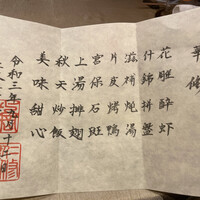 華
花雕醉虾
什錦拼盤
滋補炖湯
片皮烤鴨
宮保石斑
上湯排翅
秋天炒飯
美味甜心
令和三年